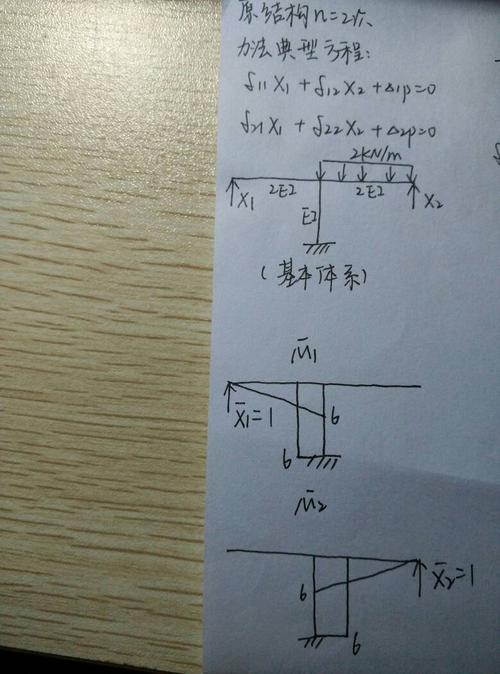 原结构n=2次
力法典型方程:
δ11X1+δ12X2+Δ1P=0
δ21X1+δ22X2+Δ2P=0
2kN/m
X1 2EI EI 2EI X2
(基本体系)
M̄1
X̄1=1 6
6
M̄2
6 X̄2=1
6